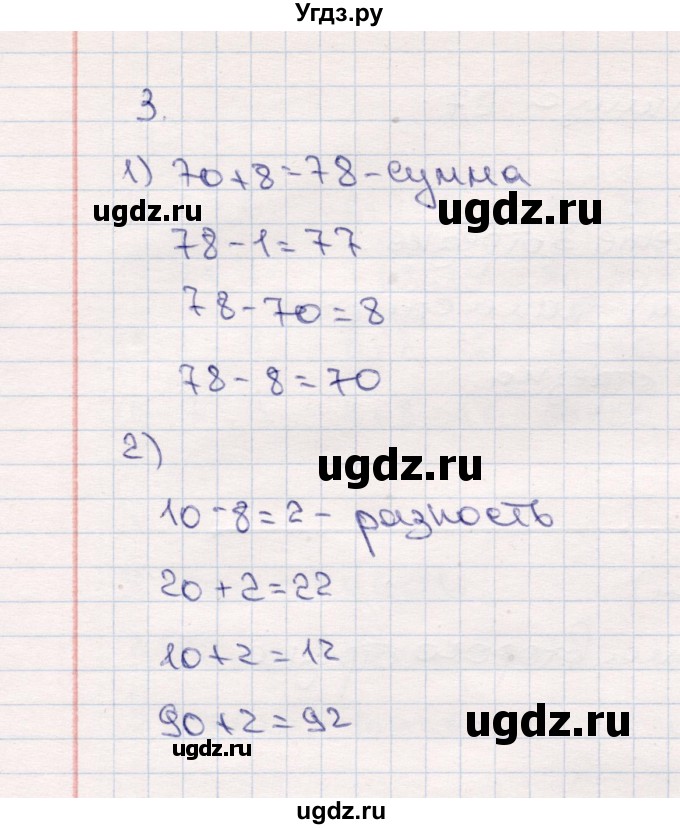 Угдз.ру
3.
1) 70+8=78-сумма
ugdz.ru ugdz.ru
78-1=77
78-70=8
78-8=70
2)
ugdz.ru
10-8=2- разность
20+2=22
10+2=12
90+2=92
ugdz.ru
ugdz.ru
ugdz.ru